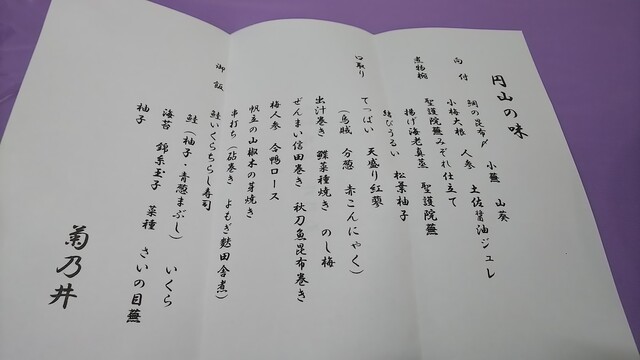 円山の味
向付
鯛の昆布〆 小蕪 山葵
小梅大根 人参 土佐醤油ジュレ
煮物椀
聖護院蕪みぞれ仕立て
揚げ海老真蒸 聖護院蕪
結びうるい 松葉柚子
口取り
てっぱい 天盛り紅蓼
(烏賊 分葱 赤こんにゃく)
出汁巻き 鰈菜種焼き のし梅
ぜんまい信田巻き 秋刀魚昆布巻き
梅人参 合鴨ロース
帆立の山椒木の芽焼き
串打ち(砧巻き よもぎ麩田舎煮)
御飯
鮭いくらちらし寿司
鮭(柚子・青葱まぶし) いくら
海苔 錦糸玉子 菜種 さいの目蕪
柚子
菊乃井